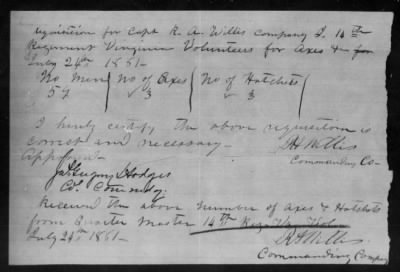 requisition for Capt R. A. Willis Company I. 14th
Regiment Virginia Volunteers for Axes & for
July 24th 1861-
No Men No of Axes No of Hatchets
57 3 3
I hereby certify, the above requisition is
correct and necessary-
RA Willis
Commanding Co-
Approved-
Jas Gregory Hodges
Col. Commdg.
Received the above number of Axes & Hatchets
from Quarter Master 14th Regt Va Vols
July 24th 1861-
RA Willis
Commanding Company